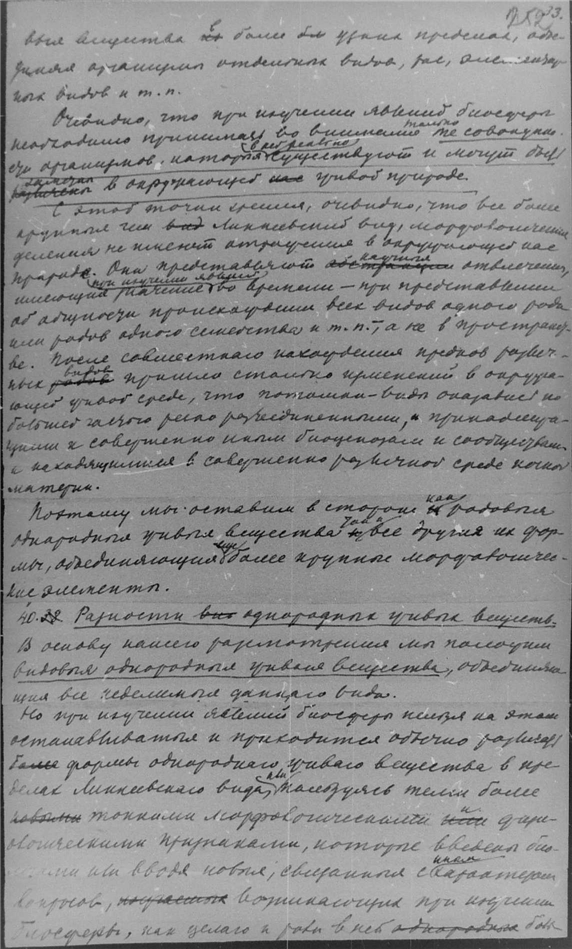 252 33.
выя вещества в более узких пределах, объе-
диняя организмы отдельных видов, рас, элементар-
ных видов и т. п.
Очевидно, что при изучении явлений биосферы
необходимо принимать во внимание только те совокупно-
сти организмов, которыя в ней реально существуют и могут быть
замечены в окружающей нас живой природе.
С этой точки зрения, очевидно, что все более
крупныя чем вид Линнеевский вид, морфологическия
деления не имеют отношения в окружающей нас
природе. Они представляют абстракции научныя отвлечения,
имеющия при изучении явлений значение во времени – при представлении
об общности происхождения всех видов одного рода
или родов одного семейства и т. п., а не в пространст-
ве. После совместнаго нахождения предков различ-
ных родов видов прошло столько изменений в окружа-
ющей живой среде, что потомки-виды оказались по
большей части резко разъединенными, и принадлежа-
щими к совершенно иным биоценозам и сообществам
и находящимися в совершенно различной среде косной
материи.
Поэтому мы оставим в стороне как родовыя
однородныя живыя вещества, так и все другия их фор-
мы, объединяющия еще более крупные морфологичес-
кие элементы.
40. 39 Разности однородных живых веществ.
В основу нашего разсмотрения мы положим
видовыя однородныя живыя вещества, объединяю-
щия все неделимыя даннаго вида.
Но при изучении явлений биосферы нельзя на этом
останавливаться и приходится обычно различать
более формы однороднаго живаго вещества в пре-
делах Линнеевскаго вида, или пользуясь теми более
новыми тонкими морфологическими или и физи-
ологическими признаками, которые введены био-
логами или вводя новыя, связанныя с характером
вопросов, возникающих при изучении
биосферы, как целаго и роли в ней однородных